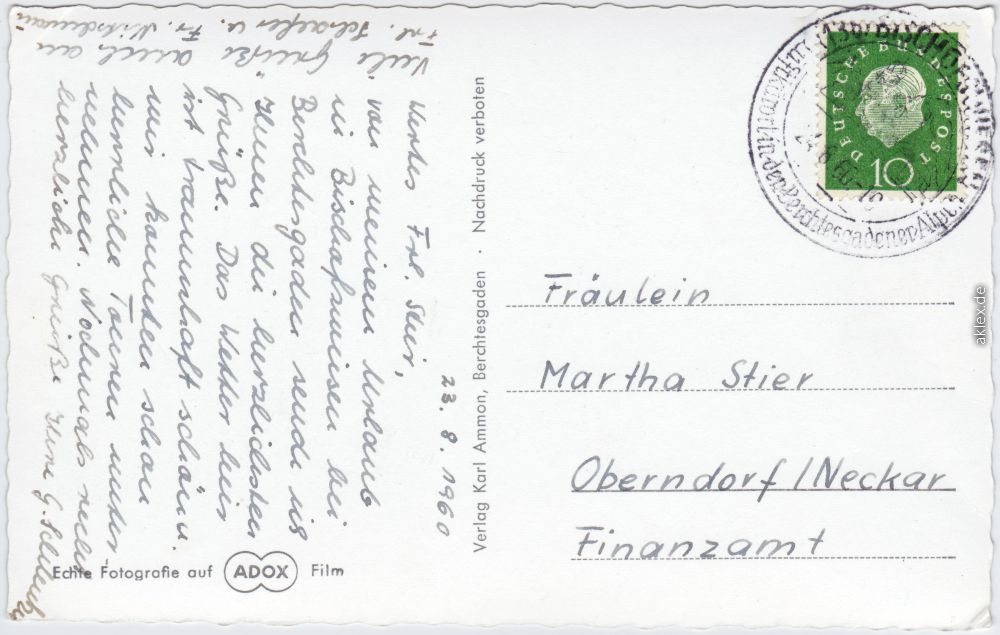 23. 8. 1960
Wertes Frl. Stier,
von meinem Urlaub
in Bischofswiesen bei
Berchtesgaden sende ich
Ihnen die herzlichsten
Grüße. Das Wetter hier
ist traumhaft schön.
Wir konnten schon
herrliche Touren unter-
nehmen. Nochmals recht
herzliche Grüße Ihre G.
Viele Grüße auch an
Frl. Schaefer u. Fr.
Echte Fotografie auf ADOX Film
Verlag Karl Ammon, Berchtesgaden · Nachdruck verboten
DEUTSCHE BUNDESPOST
10
(13b) BISCHOFSWIESEN
Luftkurort in den Berchtesgadener Alpen
24.8.60-10
Fräulein
Martha Stier
Oberndorf/Neckar
Finanzamt
aklex.de